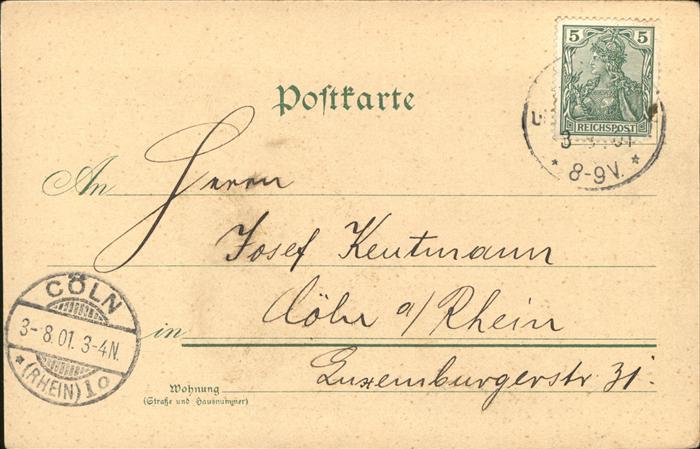 5 5
REICHSPOST
3 01
* 8-9V. *
Postkarte
An Herrn
Josef Keutmann
Cöln a/Rhein
in
Luxemburgerstr. 31.
Wohnung
(Straße und Hausnummer)
CÖLN
3-8.01. 3-4N.
* (RHEIN) 1 o